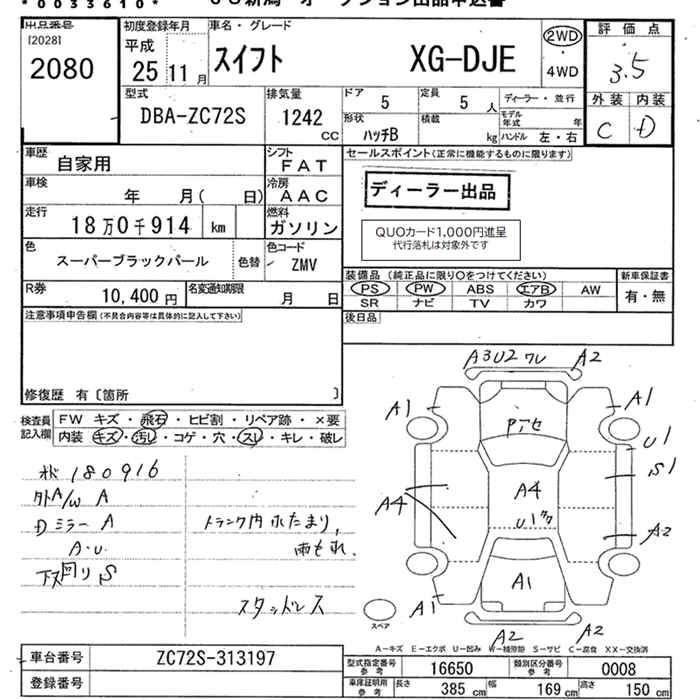 *0033610*
出品番号
[2028]
2080
初度登録年月
平成
25 11 月
車名・グレード
スイフト XG-DJE
2WD
・
4WD
評価点
3.5
外装 内装
C D
型式
DBA-ZC72S
排気量
1242
CC
ドア
5
定員
5 人
ディーラー・並行
形状
ハッチB
積載
kg
モデル年式 年
ハンドル 左・右
車歴
自家用
シフト
FAT
セールスポイント(正常に機能するものに限ります)
車検
年 月( 日)
冷房
AAC
ディーラー出品
走行
18万0千914 km
燃料
ガソリン
QUOカード1,000円進呈
代行落札は対象外です
色
スーパーブラックパール
色替
色コード
ZMV
R券
10,400 円
名変通知期限
月 日
装備品 (純正品に限り○をつけてください)
新車保証書
PS PW ABS エアB AW
SR ナビ TV カワ
有・無
注意事項申告欄(不具合内容等は具体的に記入して下さい)
後日品
修復歴 有〔箇所 〕
検査員
記入欄
FW キズ・飛石・ヒビ割・リペア跡・×要
内装 キズ・汚し・コゲ・穴・スレ・キレ・破レ
180916
外A/W A
Dミラー A
A・U
下回り S
トランク内 水たまり,
雨もれ.
スタッドレス
A3U2 ワレ A2
A1 A1
U1
S1
A4
A4
A2
A1
A1
A2 A2
スペア
A=キズ E=エクボ U=凹み W=補修跡 S=サビ C=腐食 XX=交換済
車台番号
ZC72S-313197
登録番号
型式指定番号
参考
16650
類別区分番号
参考
0008
車庫証明用
参考
長さ 385 cm
幅 169 cm
高さ 150 cm